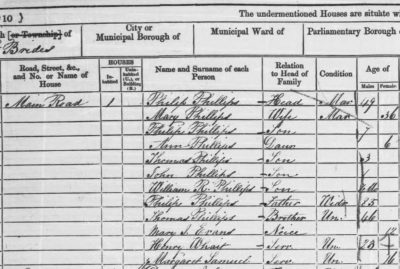 10 } The undermentioned Houses are situate wi
h [or Township] of City or Municipal Borough of Municipal Ward of Parliamentary Borough o
Brides
Road, Street, &c., and No. or Name of House HOUSES In-habited Unin-habited (U.), or Building (B.) Name and Surname of each Person Relation to Head of Family Condition Age of Males Females
Main Road 1 Philip Phillips Head Mar 49
Mary Phillips Wife Mar 36
Philip Phillips Son 7
Ann Phillips Daur 6
Thomas Phillips Son 3
John Phillips Son 1
William R. Phillips Son
Philip Phillips Father Widr 85
Thomas Phillips Brother Un 46
Mary S. Evans Niece 12
Henry Servt Un 23
Margaret Samuel Servt Un 16